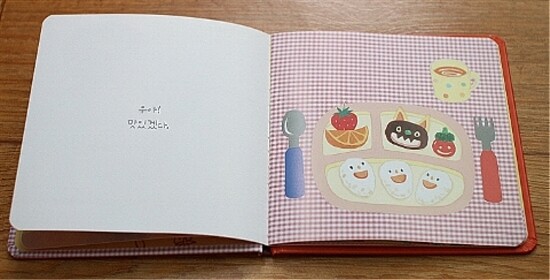 우아!
맛있겠다.